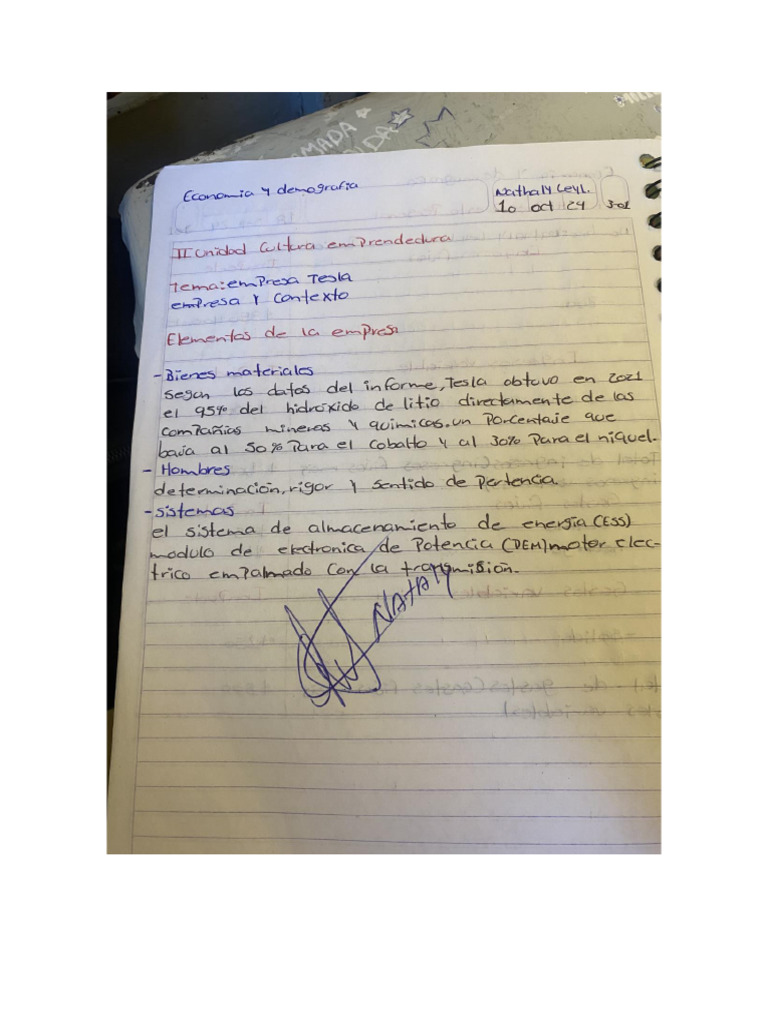 Economia y demografia
Nathaly Leyl.
10 oct 24 301
II unidad Cultura emprendedura
Tema: empresa Tesla
empresa y contexto
Elementos de la empresa
- Bienes materiales
segun los datos del informe, Tesla obtuvo en 2021
el 95% del hidroxido de litio directamente de las
compañias mineras y quimicas. un porcentaje que
baja al 50% para el cobalto y al 30% para el niquel.
- Hombres
determinación, rigor y sentido de pertencia.
- sistemas
el sistema de almacenamiento de energia (ESS)
modulo de electronica de Potencia (DEM) motor elec-
trico empalmado con la transmisión.
NAthAly